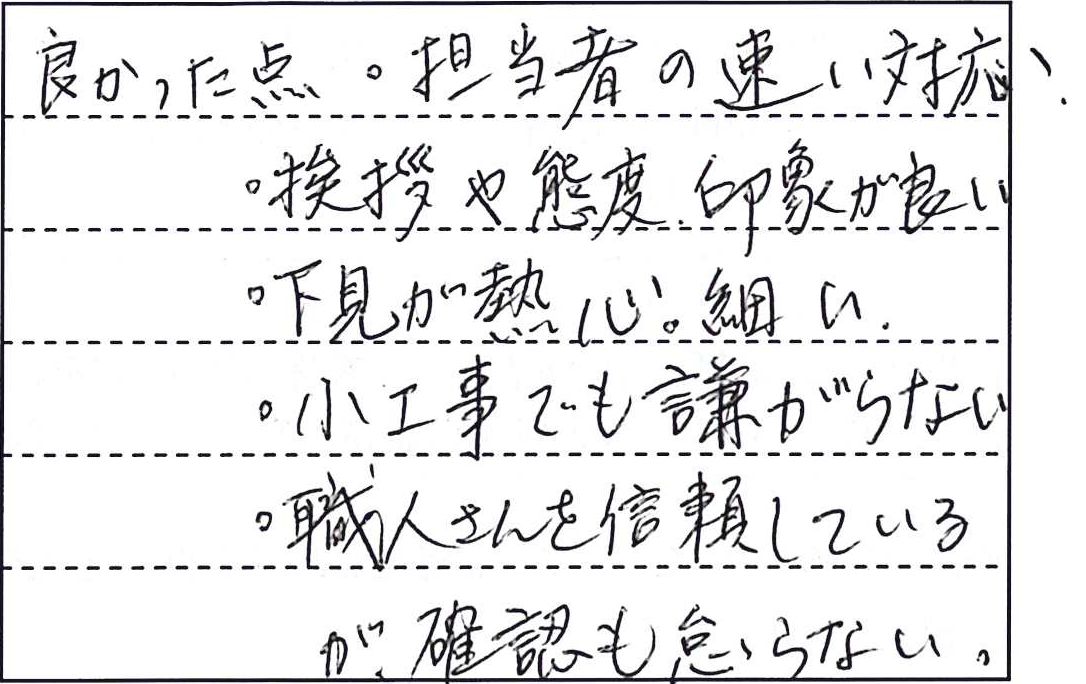 良かった点 。担当者の速い対応、
。挨拶や態度、印象が良い
。下見が熱心。細い、
。小工事でも謙がらない
。職人さんを信頼している
が、確認も怠らない。